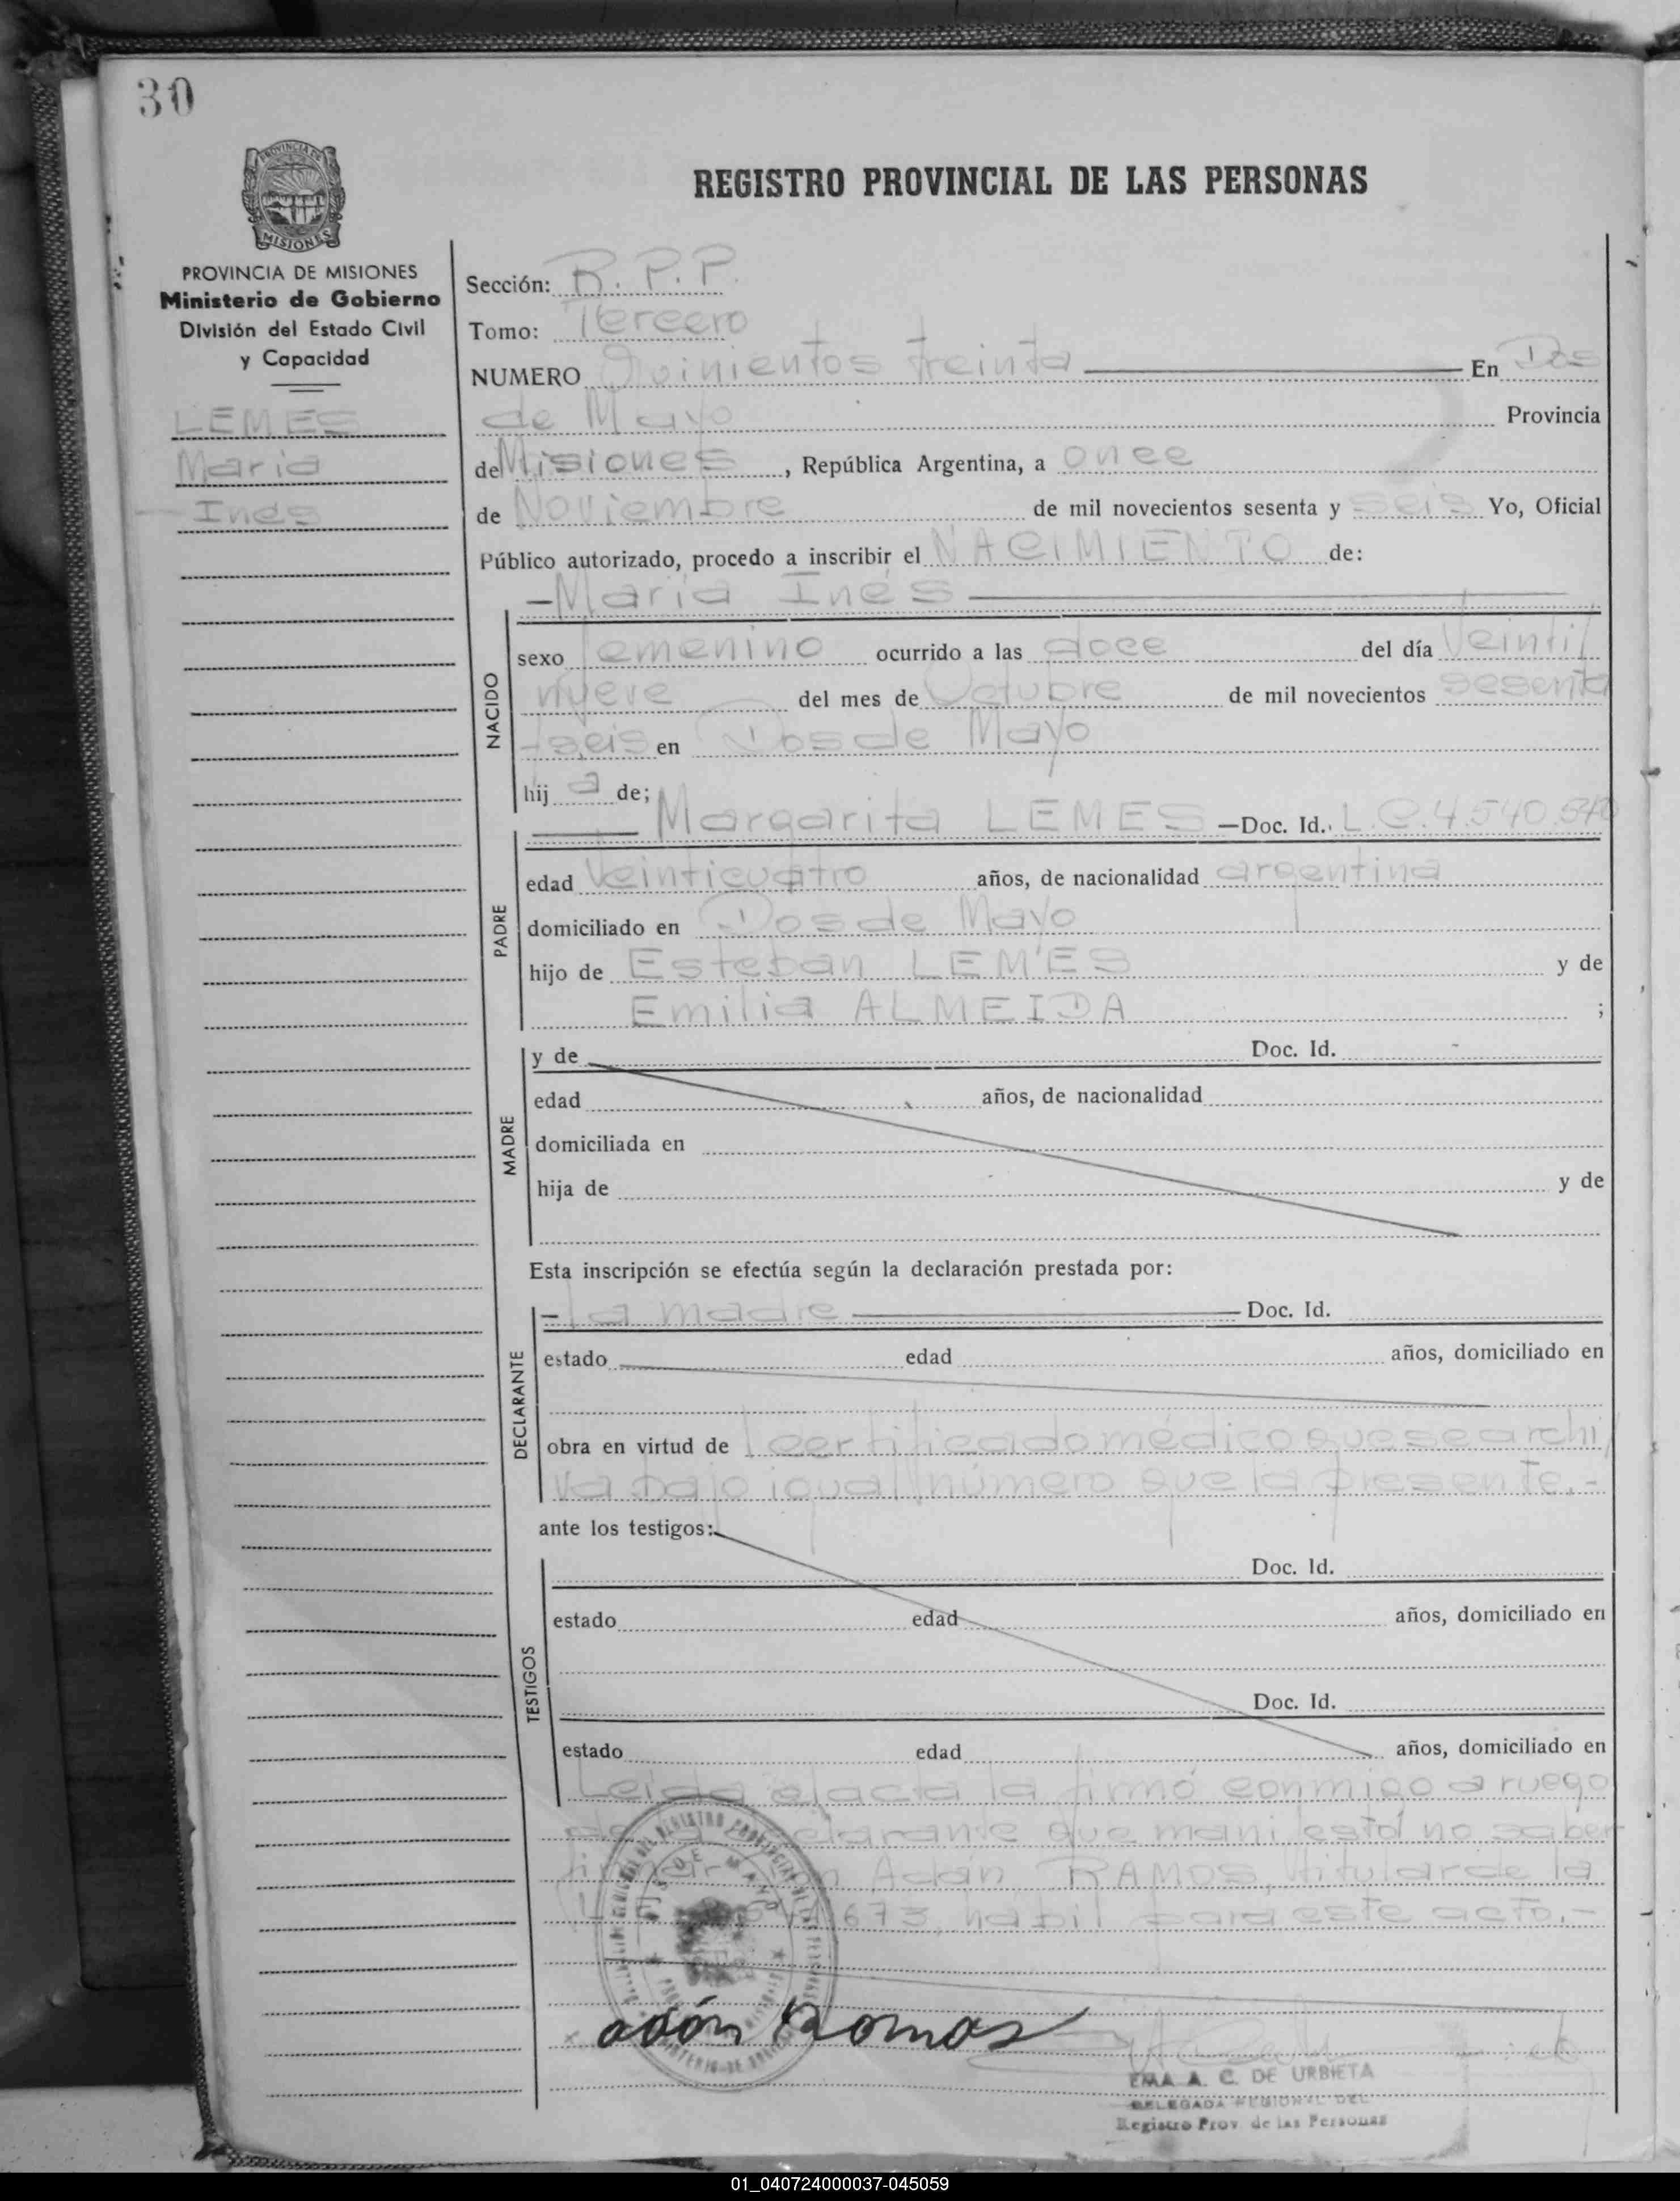 30
PROVINCIA DE
MISIONES
REGISTRO PROVINCIAL DE LAS PERSONAS
PROVINCIA DE MISIONES
Ministerio de Gobierno
División del Estado Civil
y Capacidad
LEMES
Maria
Inés
Sección: R. P. P.
Tomo: Tercero
NUMERO Quinientos treinta En Dos
de Mayo Provincia
de Misiones, República Argentina, a once
de Noviembre de mil novecientos sesenta y seis Yo, Oficial
Público autorizado, procedo a inscribir el NACIMIENTO de:
—Maria Inés
NACIDO
sexo femenino ocurrido a las doce del día Veinti
nueve del mes de Octubre de mil novecientos sesenta
seis en Dos de Mayo
hij a de;
Margarita LEMES —Doc. Id. L.C. 4.540.
PADRE
edad Veinticuatro años, de nacionalidad argentina
domiciliado en Dos de Mayo
hijo de Esteban LEMES y de
Emilia ALMEIDA ;
MADRE
y de Doc. Id.
edad años, de nacionalidad
domiciliada en
hija de y de
Esta inscripción se efectúa según la declaración prestada por:
DECLARANTE
- la madre Doc. Id.
estado edad años, domiciliado en
obra en virtud de certificado médico que se archi
va bajo igual número que la presente.-
ante los testigos:
TESTIGOS
Doc. Id.
estado edad años, domiciliado en
Doc. Id.
estado edad años, domiciliado en
Leida el acta la firmó conmigo a ruego
clarante que manifestó no saber
firmar Adán RAMOS, titular de la
673, habil para este acto.-
DOS DE MAYO
adón Ramos
EMA A. C. DE URBIETA
DELEGADA REGIONAL DEL
Registro Prov. de las Personas
01_040724000037-045059